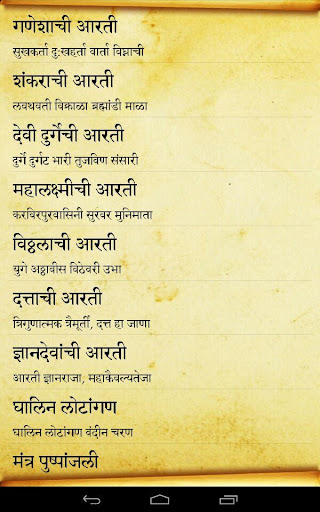 गणेशाची आरती
सुखकर्ता दुःखहर्ता वार्ता विघ्नाची
शंकराची आरती
लवथवती विक्राळा ब्रह्मांडी माळा
देवी दुर्गेची आरती
दुर्गे दुर्गट भारी तुजविण संसारी
महालक्ष्मीची आरती
करविरपुरवासिनी सुरवर मुनिमाता
विठ्ठलाची आरती
युगे अठ्ठावीस विठेवरी उभा
दत्ताची आरती
त्रिगुणात्मक त्रैमूर्ती, दत्त हा जाणा
ज्ञानदेवांची आरती
आरती ज्ञानराजा, महाकैवल्यतेजा
घालिन लोटांगण
घालिन लोटांगण वंदीन चरण
मंत्र पुष्पांजली